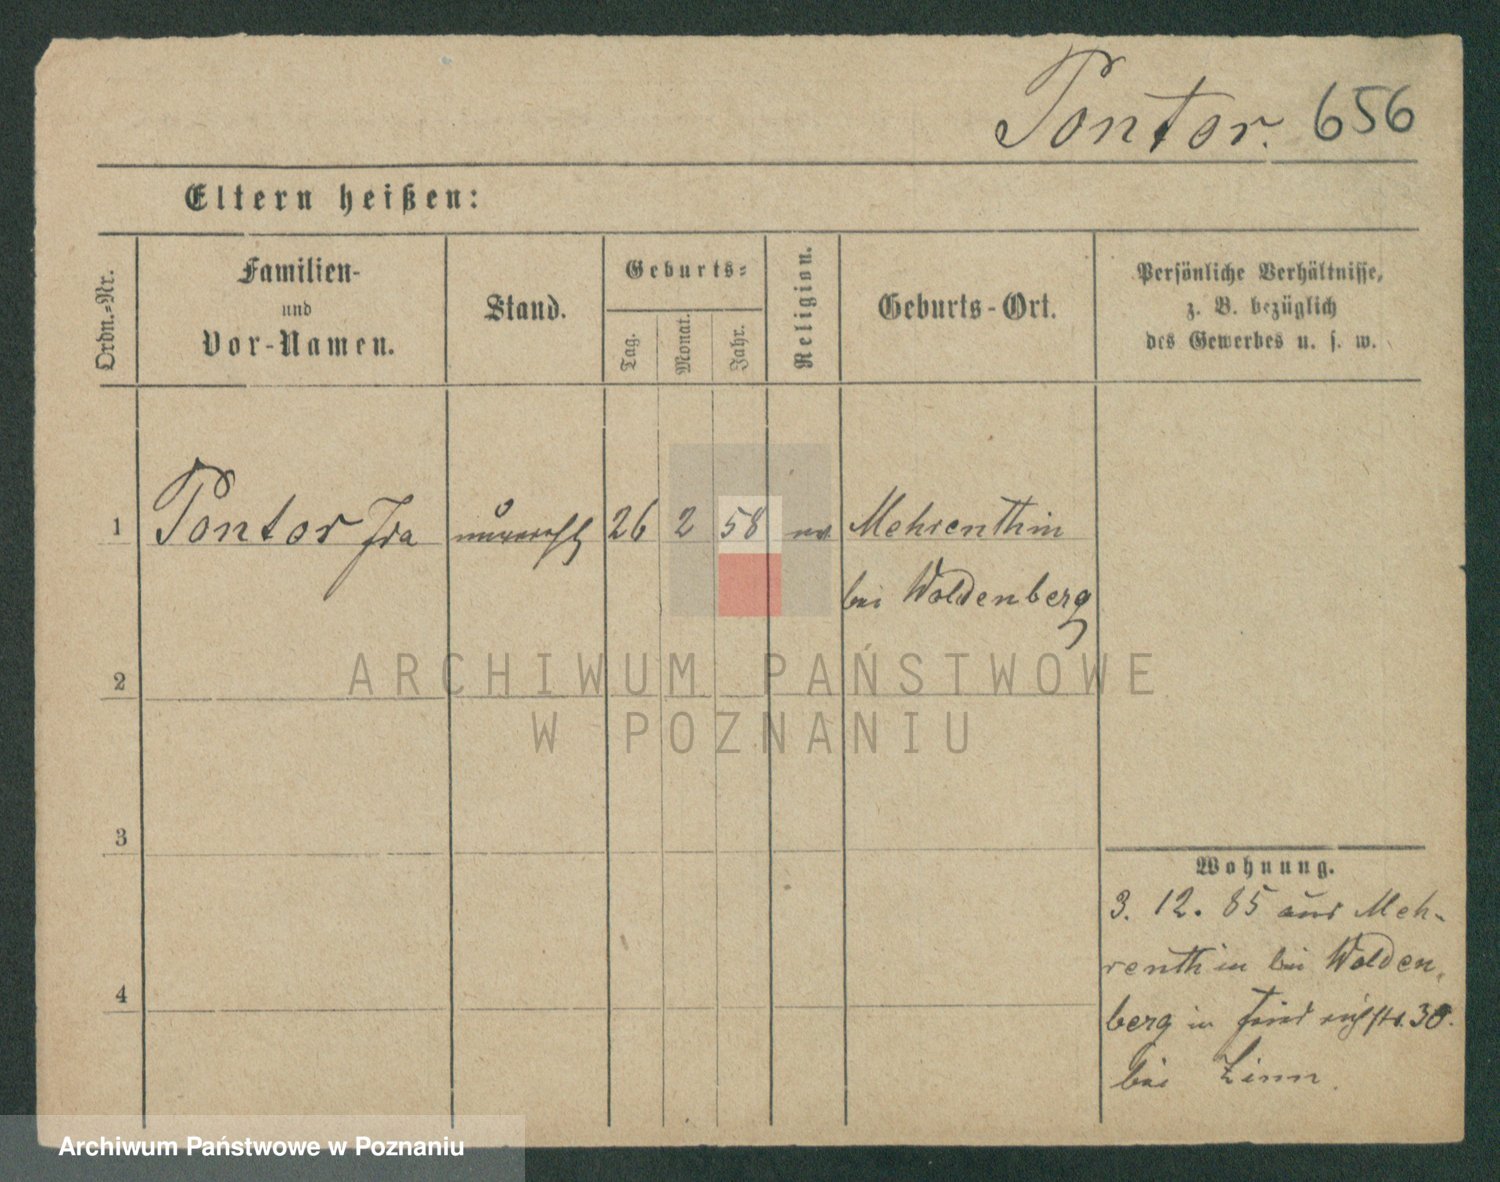 Pontor. 656
Eltern heißen:
Ordn.-Nr.
Familien-
und
Vor-Namen.
Stand.
Geburts-
Tag.
Monat.
Jahr.
Religion.
Geburts-Ort.
Persönliche Verhältnisse,
z. B. bezüglich
des Gewerbes u. s. w.
1 Pontor Ida 26 2 58 ev Mehrenthin
bei Woldenberg
2
3
4
Wohnung.
3. 12. 85 aus Meh-
renthin bei Wolden-
berg in 30.
bei Zinn.
ARCHIWUM PAŃSTWOWE
W POZNANIU
Archiwum Państwowe w Poznaniu